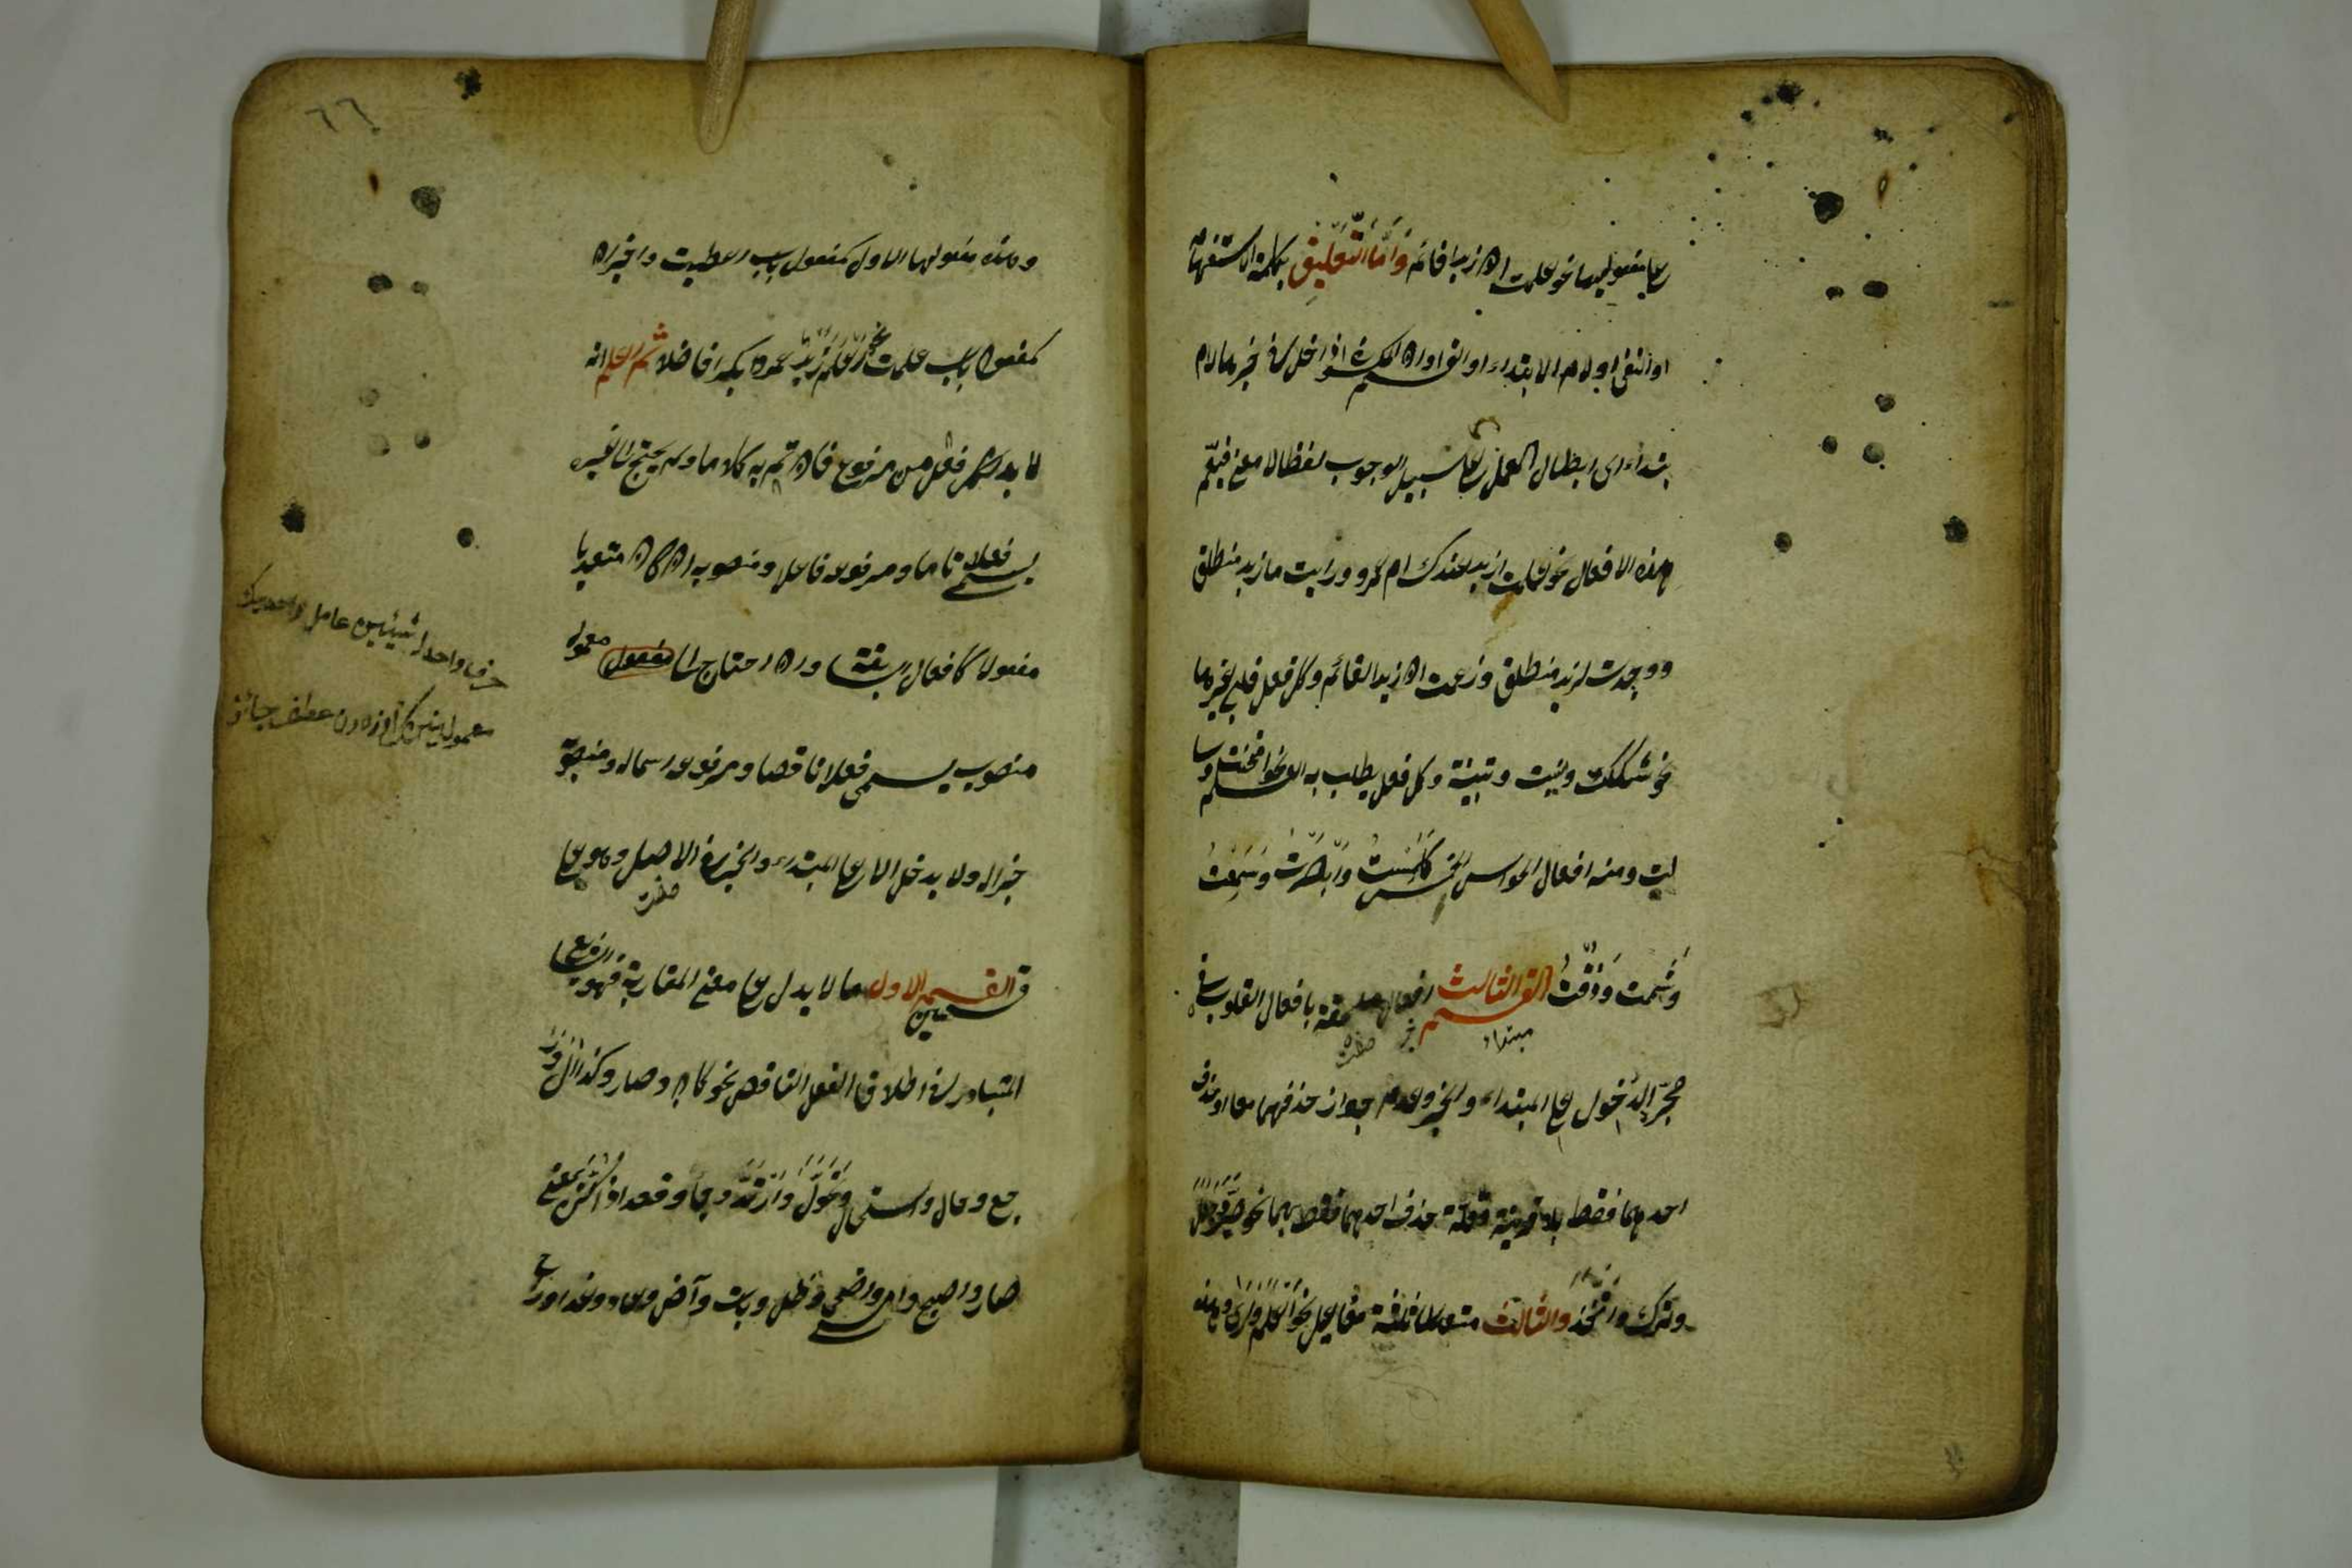 على مفعوليها نحو علمت ان زيدا قائم وَأَمَّا التَّعْلِيقُ بكلمة الاستفهام
او النفى او لام الابتداء او القسم او ان المكسورة اذا دخل في خبرها لام
بتداء اى ابطال العمل على سبيل الوجوب لفظا لا معنى فيعم
هذه الافعال نحو علمت ازيد عندك ام عمرو ورايت ما زيد منطلق
ووجدت لزيد منطلق وزعمت ان زيدا لقائم وكل فعل قلبي غيرها
نحو شككت ونسيت وتبينت وكل فعل يطلب به العلم نحو امتحنت وسا
لت ومنه افعال الحواس الخمس كَلَمَسْتُ وَاَبْصَرْتُ وَسَمِعْتُ
وَشَمِمْت وَذُقْتُ القسم الثالث افعال ملحقة بافعال القلوب في
مبتداء
خبر
صفت
مجرّد الدخول على المبتداء والخبر وعدم جواز حذفهما معا او حذف
احدهما فقط بلا قرينة وقلة حذف احدهما فقط بها نحو صَيَّرَ وَجَعَلَ
وترك واتَّخَذَ والثالث متعد الى ثلثة مفاعيل نحو اَعْلَمَ وَاَرَى وهذه
٦٦
وهذه مفعولها الاول كمفعول باب اعطيت واخيران
كمفعولى باب علمت نحو اَعْلَمَ زَيْدٌ عمروا بكرا فاضلا ثم اعلم انه
لا بد لكل فعل من مرفوع فان تم به كلاما ولم يحتج الى غيره
يسمى فعلا تاما ومرفوعه فاعلا ومنصوبه ان كان متعديا
مفعولا كافعال سابقة وان احتاج الى مفعول معمول
منصوب يسمى فعلا ناقصا ومرفوعه اسما له ومنصوبه
خبرا له ولا يدخل الا على المبتداء والخبر في الاصل وهو على
صفت
قسمين القسم الاول ما لا يدل على معنى المقاربة فهو
المتبادر في اطلاق الفعل الناقص نحو كان وصار وكذا آل ور
جع وحال واستحال وَتَحَوَّلَ وَارْتَدَّ وجاء وقعد اذا كُنَّ بمعنى
صار واصبح وامسى واضحى وظل وبات وآض وعاد وغدا وراح
حرف واحد شيئين عامل واحد
معمولين عطف جائز